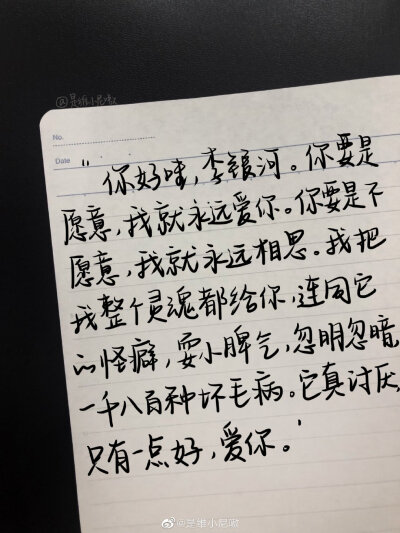 @是维小尼嗷
No.
Date
"你好哇,李银河。你要是
愿意,我就永远爱你。你要是不
愿意,我就永远相思。我把
我整个灵魂都给你,连同它
的怪癖,耍小脾气,忽明忽暗,
一千八百种坏毛病。它真讨厌,
只有一点好,爱你。"
@是维小尼嗷